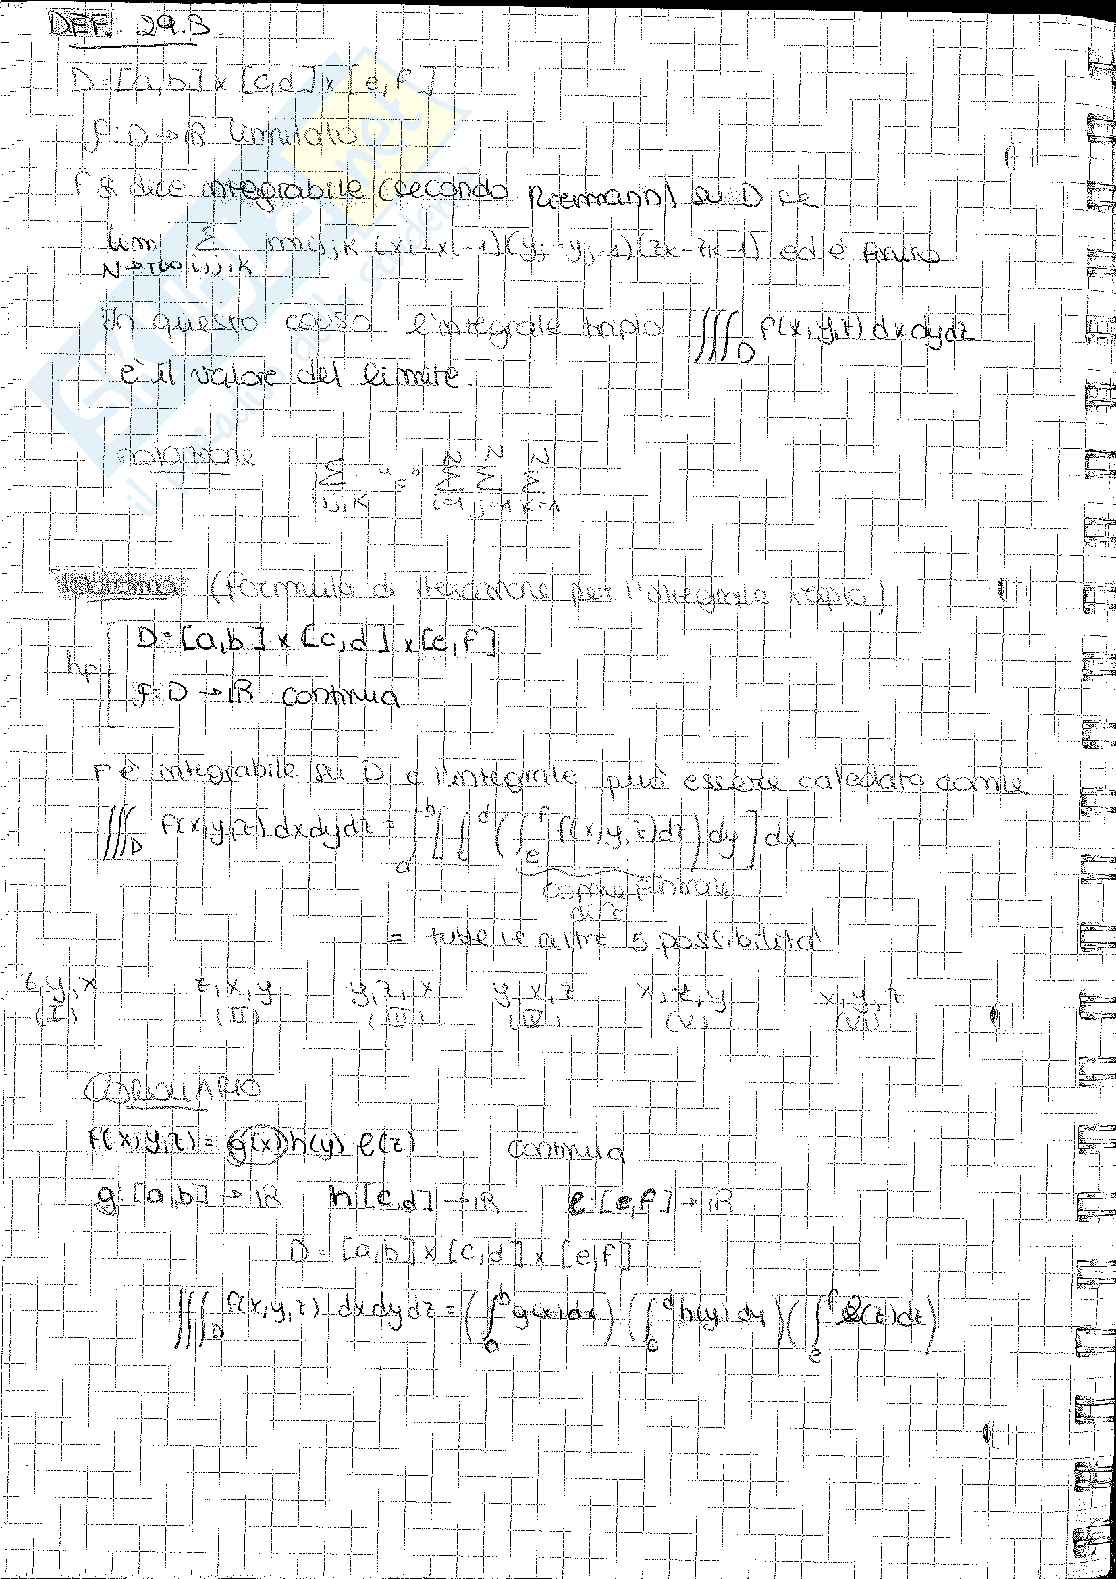 DEF. 29.3
D=[a,b]×[c,d]×[e,f]
f:D→ℝ limitata
f si dice integrabile (secondo Riemann) su D se
lim Σ i,j,k (xi-xi-1)(yj-yj-1)(zk-zk-1) ed è finito
N→+∞ i,j,k
In questo caso l'integrale triplo ∭D f(x,y,z)dxdydz
è il valore del limite.
notazione Σ i,j,k "=" Σ i=1 N Σ j=1 N Σ k=1 N
(formula di iterazione per l'integrale triplo)
hp D=[a,b]×[c,d]×[e,f]
f:D→ℝ continua
f è integrabile su D e l'integrale può essere calcolato come
∭D f(x,y,z)dxdydz = ∫a b [∫c d (∫e f f(x,y,z)dz)dy]dx
come funzione
di z
= tutte le altre 5 possibilità
z,y,x z,x,y y,z,x y,x,z x,z,y x,y,z
(I) (II) (III) (IV) (V) (VI)
COROLLARIO
f(x,y,z)=g(x)h(y)l(z) continua
g:[a,b]→ℝ h[c,d]→ℝ l:[e,f]→ℝ
D=[a,b]×[c,d]×[e,f]
∭D f(x,y,z) dxdydz=(∫a b g(x)dx)(∫c d h(y)dy)(∫e f l(z)dz)